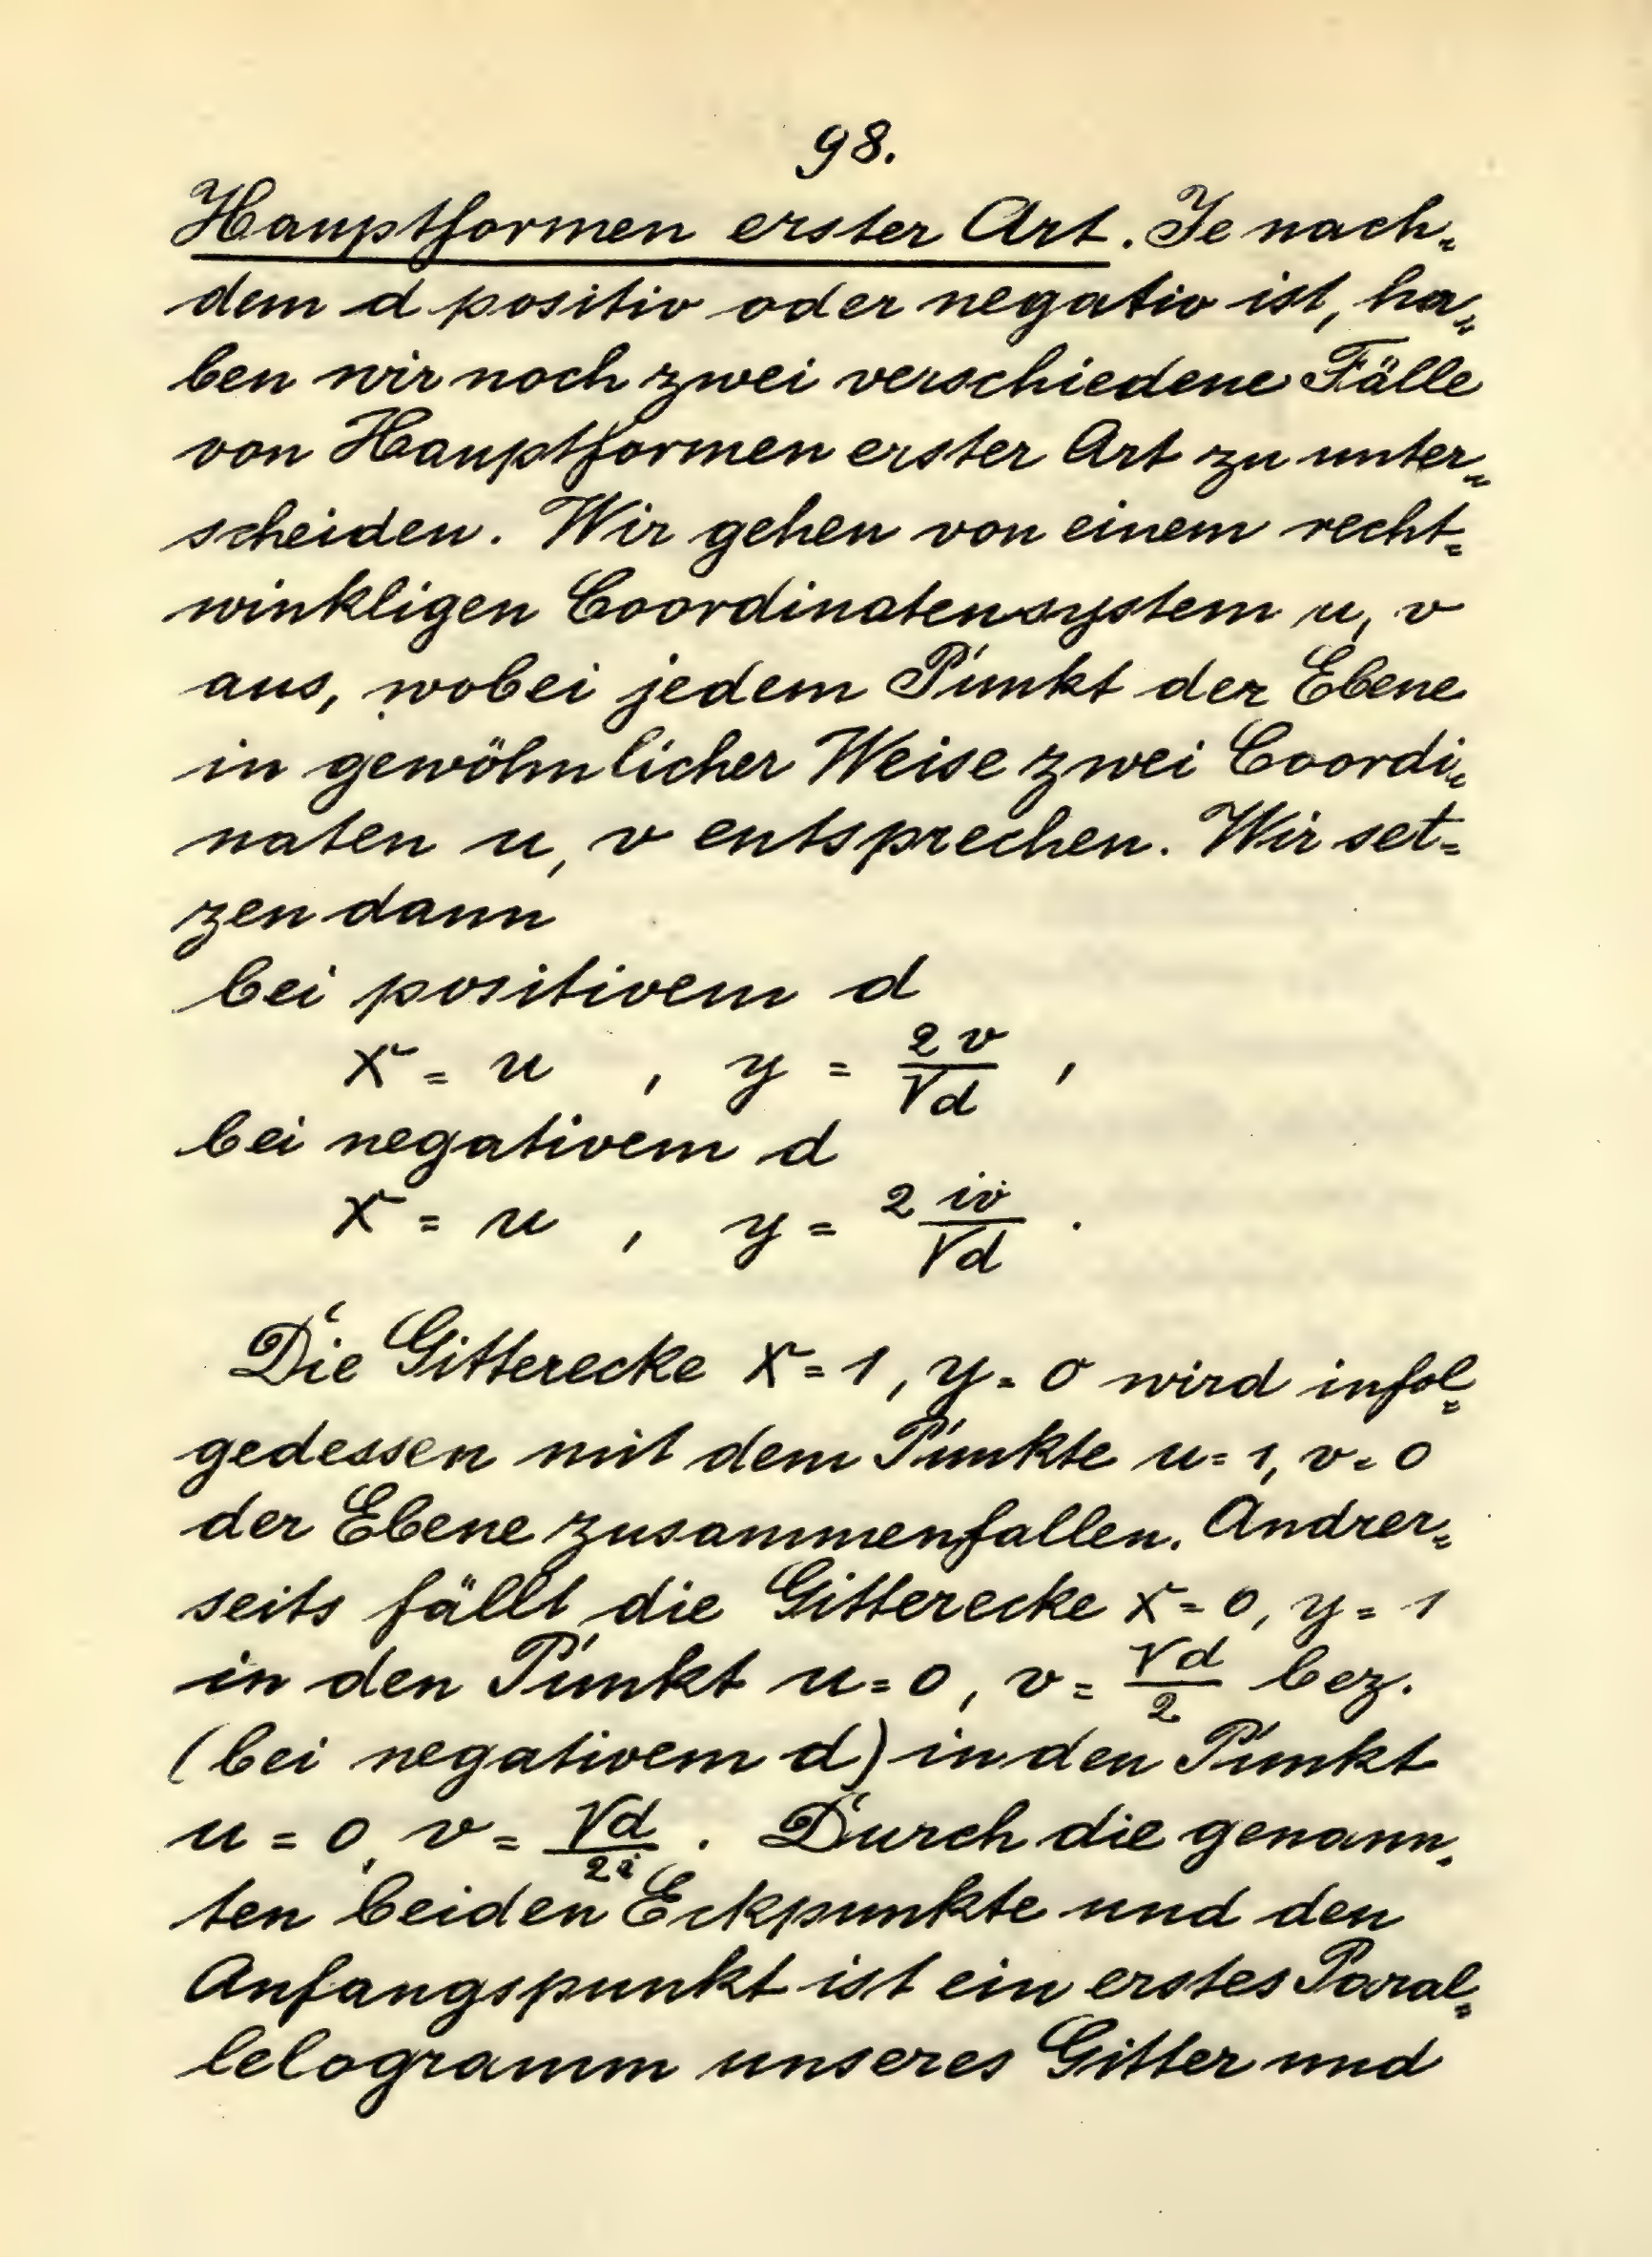 98.
Hauptformen erster Art. Je nach=
dem d positiv oder negativ ist, ha=
ben wir noch zwei verschiedene Fälle
von Hauptformen erster Art zu unter=
scheiden. Wir gehen von einem recht=
winkligen Coordinatensystem u, v
aus, wobei jedem Punkt der Ebene
in gewöhnlicher Weise zwei Coordi=
naten u, v entsprechen. Wir set=
zen dann
bei positivem d
x = u , y = 2v/√d ,
bei negativem d
x = u , y = 2iv/√d .
Die Gitterecke x = 1, y = 0 wird infol=
gedessen mit dem Punkte u = 1, v = 0
der Ebene zusammenfallen. Andrer=
seits fällt die Gitterecke x = 0, y = 1
in den Punkt u = 0, v = √d/2 bez.
(bei negativem d) in den Punkt
u = 0, v = √d/2i . Durch die genann=
ten beiden Eckpunkte und den
Anfangspunkt ist ein erstes Paral=
lelogramm unseres Gitter und